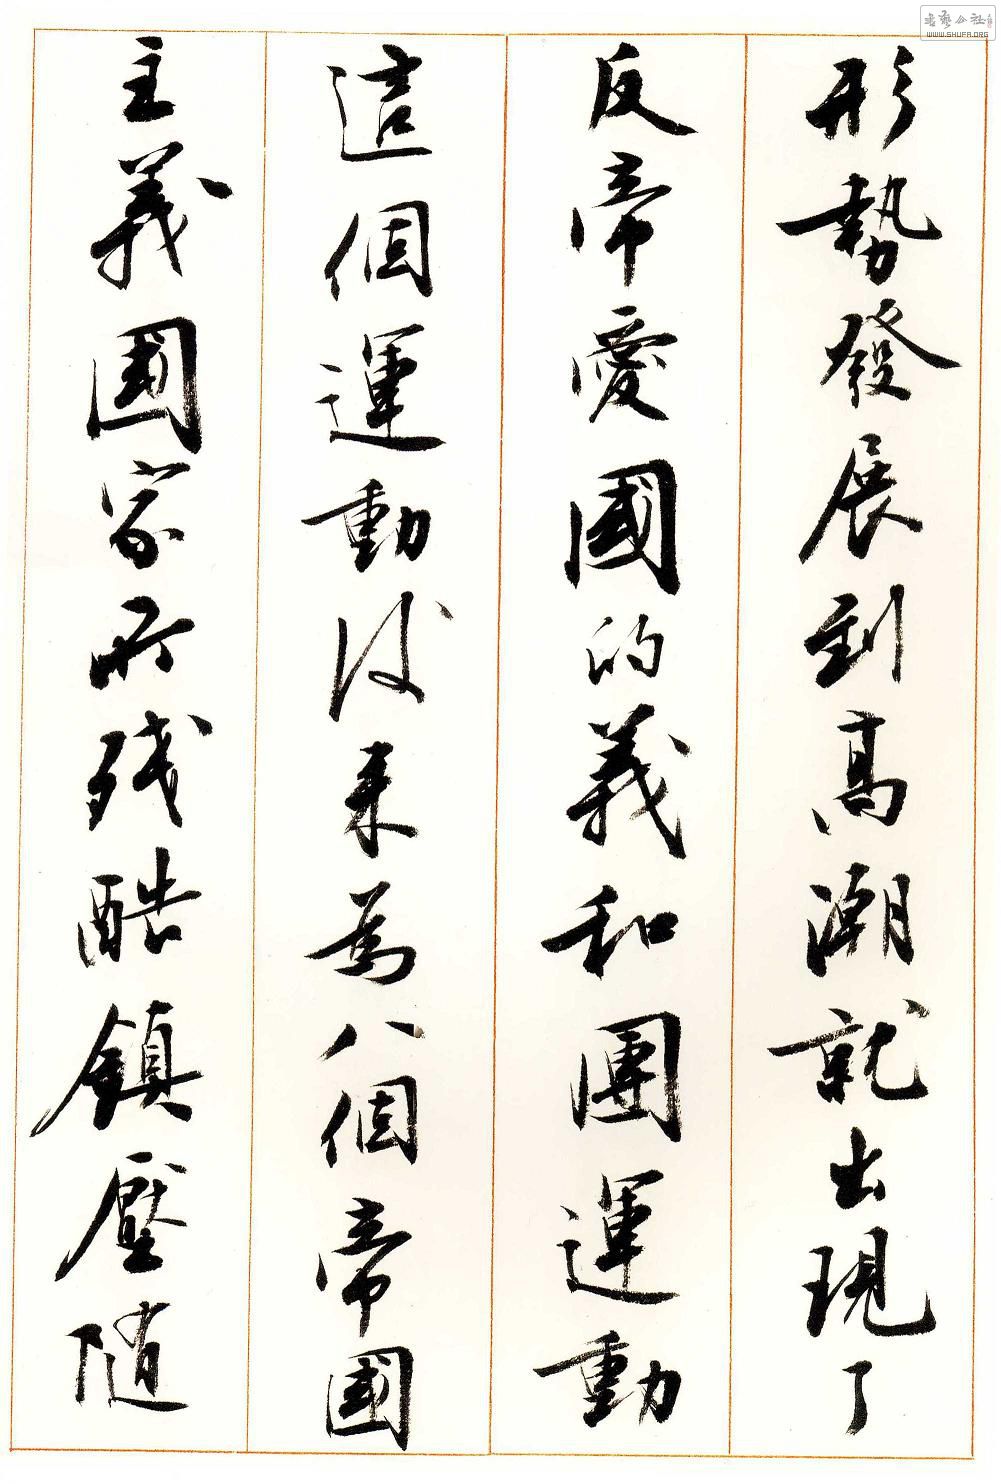 形勢發展到高潮就出現了
反帝愛國的義和團運動
這個運動後來為八個帝國
主義國家所残酷鎮壓隨
書藝公社
WWW.SHUFA.ORG